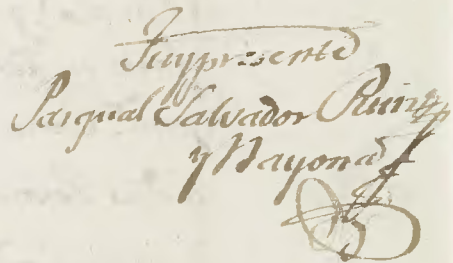 Fuy presente
Pasqual Salvador Ruiz
y Nayona